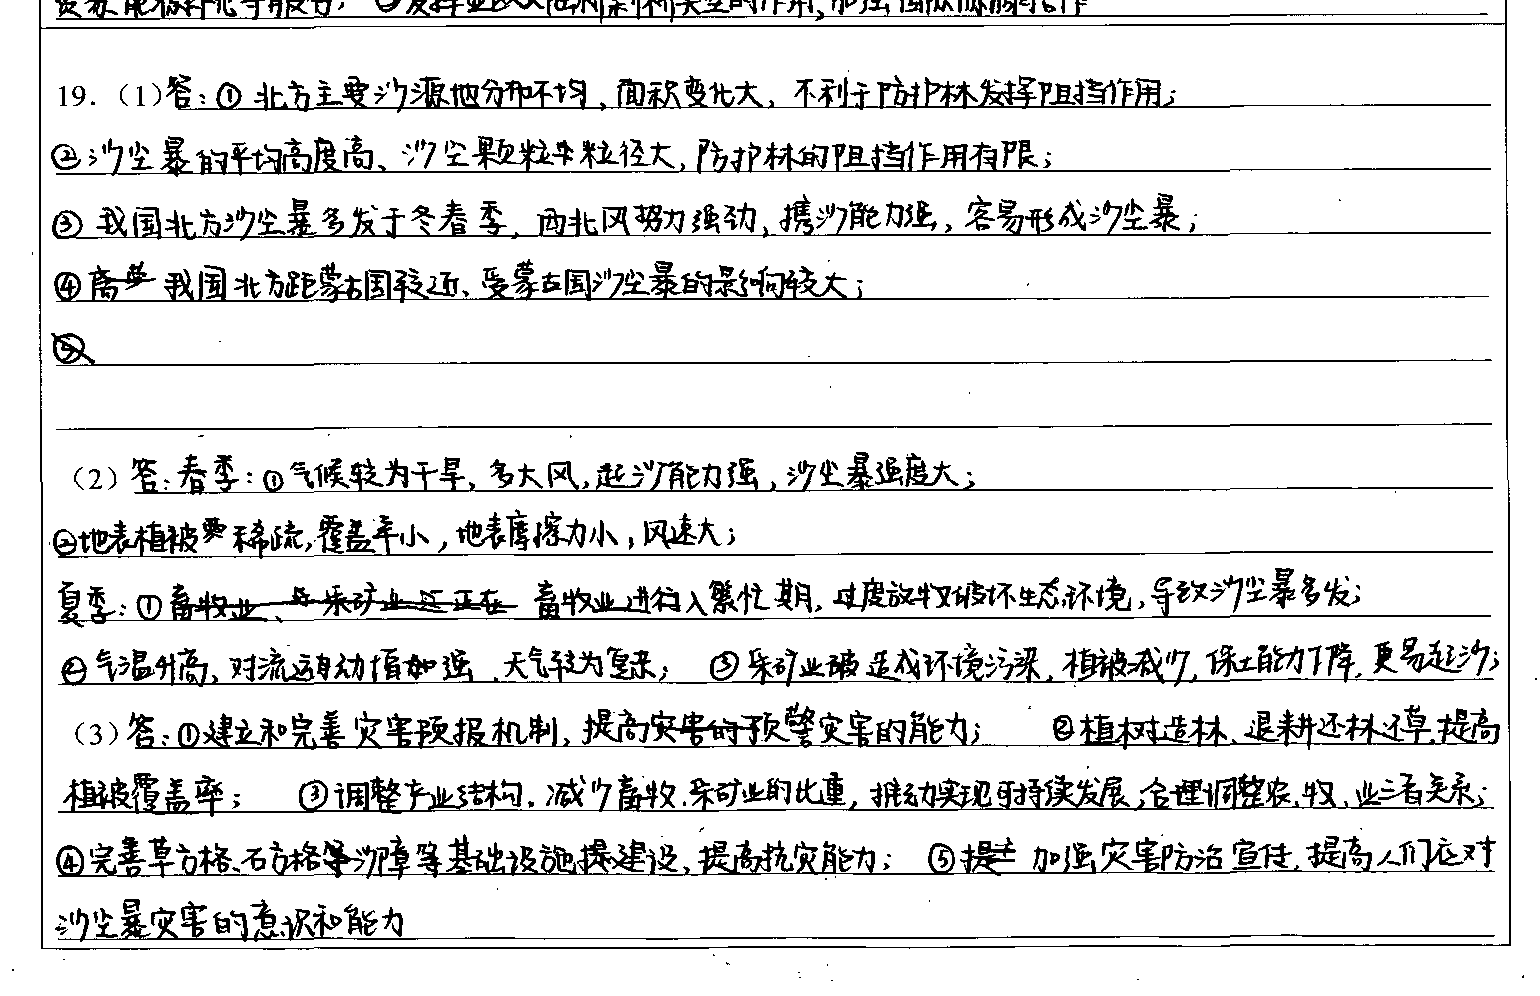 ②发挥
19.（1）答：①北方主要沙源地分布不均、面积变化大，不利于防护林发挥阻挡作用；
②沙尘暴的平均高度高、沙尘颗粒粒径大，防护林的阻挡作用有限；
③我国北方沙尘暴多发于冬春季，西北风势力强劲，携沙能力强，容易形成沙尘暴；
④我国北方距蒙古国较近、受蒙古国沙尘暴的影响较大；
（2）答：春季：①气候较为干旱，多大风，起沙能力强，沙尘暴强度大；
②地表植被稀疏，覆盖率小，地表摩擦力小，风速大；
夏季：①畜牧业进入繁忙期，过度放牧破坏生态环境，导致沙尘暴多发；
②气温升高，对流运动增加强，天气较为复杂； ③采矿业造成环境污染，植被减少，保土能力下降，更易起沙；
（3）答：①建立和完善灾害预报机制，提高预警灾害的能力； ②植树造林、退耕还林还草，提高
植被覆盖率； ③调整产业结构，减少畜牧、采矿业的比重，推动实现可持续发展，合理调整农、牧、业三者关系；
④完善草方格、石方格等沙障等基础设施建设，提高抗灾能力； ⑤加强灾害防治宣传，提高人们应对
沙尘暴灾害的意识和能力